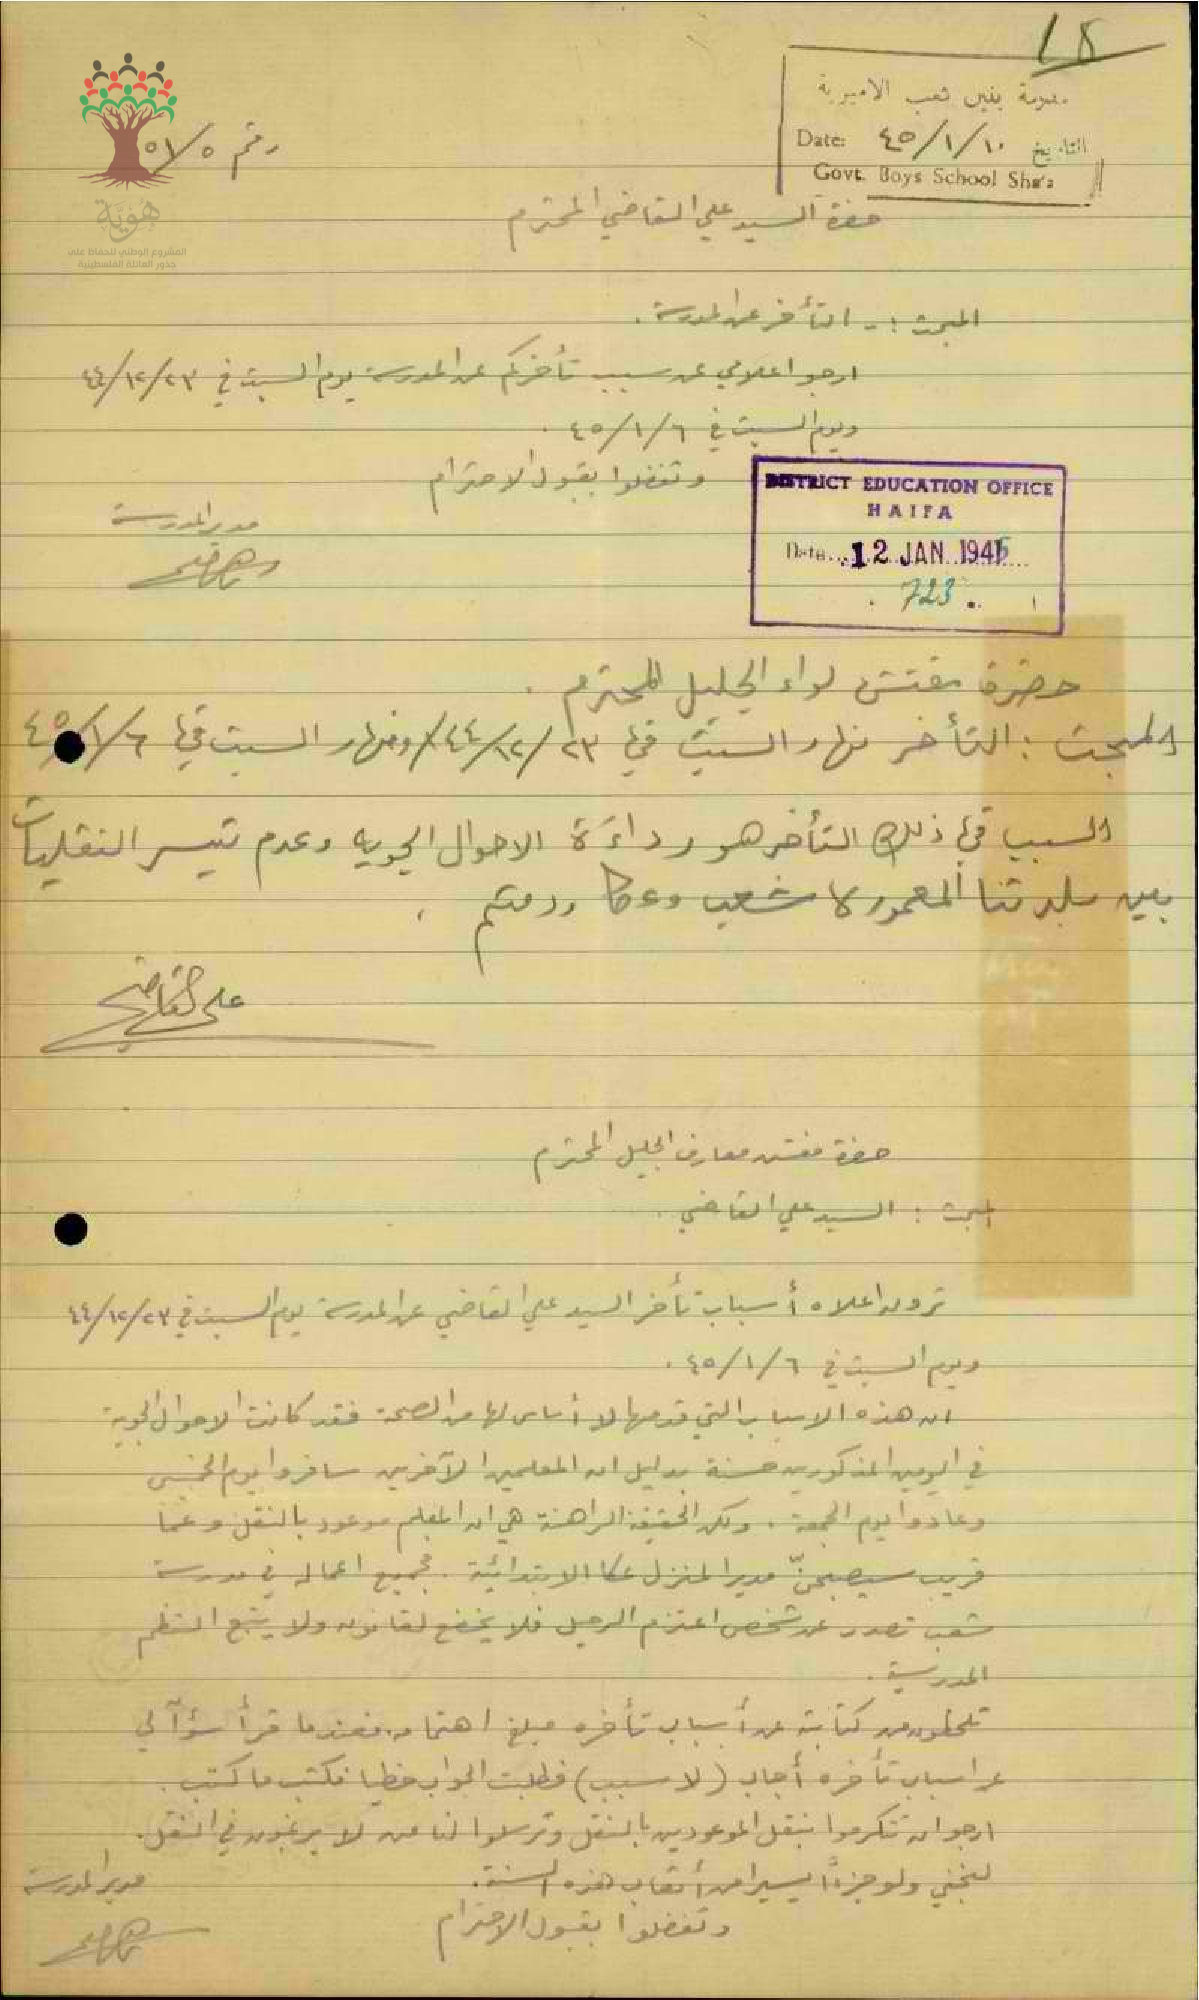 ١٨
مدرسة بنين شعب الاميرية
Date: ٤٥/١/١٠ التاريخ
Govt. Boys School Sha'a
رقم ٥١/٥
هوية
المشروع الوطني للحفاظ على
جذور العائلة الفلسطينية
حضرة السيد علي القاضي المحترم
المبحث :- التأخر عن المدرسة .
ارجو اعلامي عن سبب تأخركم عن المدرسة يوم السبت في ٤٤/١٢/٢٣
ويوم السبت في ٤٥/١/٦ .
وتفضلوا بقبول الاحترام
مدير المدرسة
DISTRICT EDUCATION OFFICE
HAIFA
Date... 12 JAN 1945
723
حضرة مفتش لواء الجليل المحترم .
المبحث : التأخر نهار السبت في ٤٤/١٢/٢٣ ونهار السبت في ٤٥/١/٦
السبب في ذلك التأخر هو رداءة الاحوال الجويه وعدم تيسر النقليات
بين بلدتنا المعمورة شعب وعكا ودمتم .
علي القاضي
حضرة مفتش معارف الجليل المحترم
المبحث : السيد علي القاضي .
ترون اعلاه أسباب تأخر السيد علي القاضي عن المدرسة يوم السبت في ٤٤/١٢/٢٣
ويوم السبت في ٤٥/١/٦ .
ان هذه الاسباب التي قدمها لا أساس لها من الصحة فقد كانت الاحوال الجوية
في اليومين المذكورين حسنة بدليل ان المعلمين الآخرين سافروا يوم الخميس
وعادوا يوم الجمعة . ولكن الحقيقة الراهنة هي ان المعلم موعود بالنقل وعما
قريب سيصبحنّ مديرا لمنزل عكا الابتدائية . فجميع اعماله في مدرسة
شعب تصدر عن شخص اعتزم الرحيل فلا يخضع لقانون ولا يتبع النظم
المدرسية .
تلحظون من كتابته عن أسباب تأخره مبلغ اهتمامه فعندما قرأ سؤآلي
عن اسباب تأخره أجاب (لا سبب) فطلبت الجواب خطيا فكتب ما كتب .
ارجو ان تتكرموا بنقل الموعودين بالنقل وترسلوا لنا من لا يرغبون في النقل .
ولو جزءًا يسيرا من أتعاب هذه السنة .
وتفضلوا بقبول الاحترام
مدير المدرسة